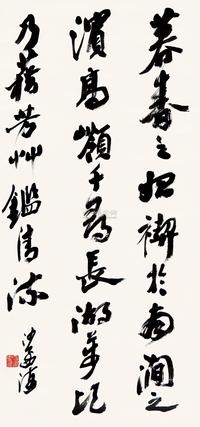 暮春之始禊於南澗之
濱高嶺千尋長湖萬頃
乃藉芳艸鑑清流
沙孟海